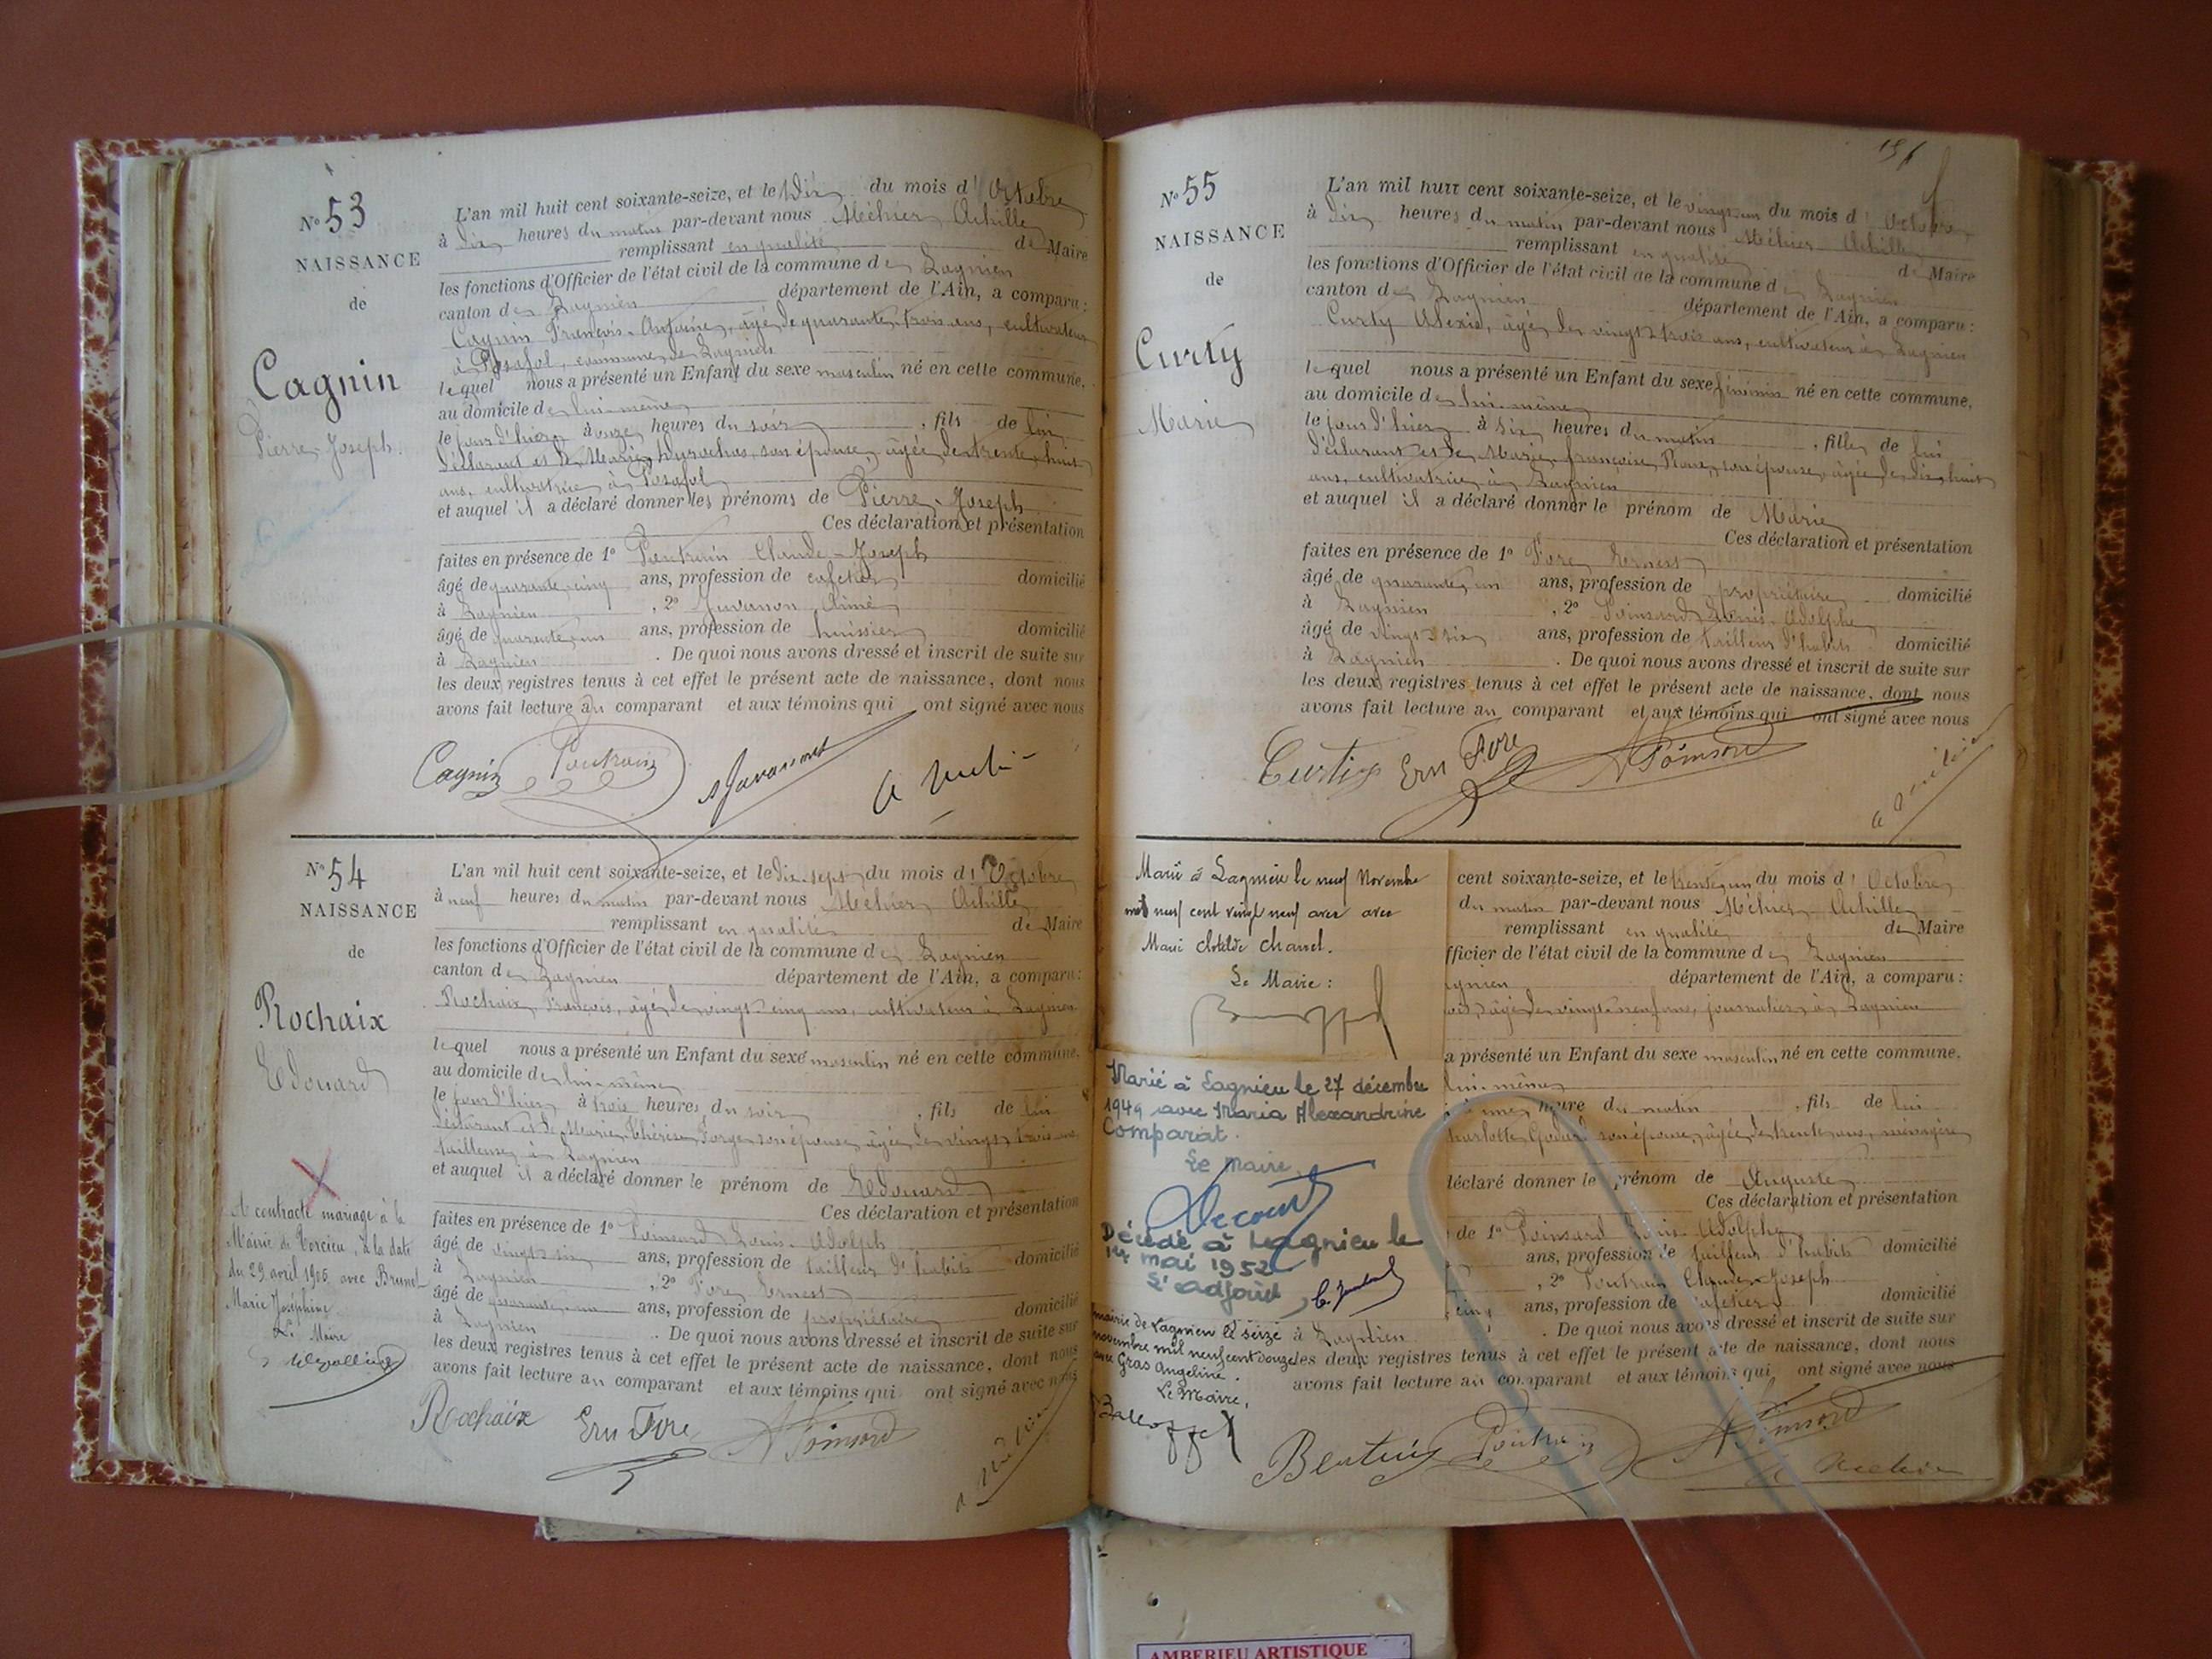 N° 53
NAISSANCE
de
Cagnin
Pierre-Joseph.
L'an mil huit cent soixante-seize, et le dix du mois d'Octobre
à dix heures du matin par-devant nous Méhier Achille
remplissant en qualité de Maire
les fonctions d'Officier de l'état civil de la commune de Lagnieu
canton de Lagnieu département de l'Ain, a comparu :
Cagnin François-Antoine, âgé de quarante-trois ans, cultivateur
à Posafol, commune de Lagnieu
lequel nous a présenté un Enfant du sexe masculin né en cette commune,
au domicile de lui-même
le jour d'hier à onze heures du soir, fils de lui
déclarant et de Marie son épouse, âgée de trente-huit
ans, cultivatrice à Posafol
et auquel il a déclaré donner les prénoms de Pierre-Joseph
Ces déclaration et présentation
faites en présence de 1° Poutrain Claude-Joseph
âgé de quarante-cinq ans, profession de cafetier domicilié
à Lagnieu, 2° Juvanon Aimé
âgé de quarante-un ans, profession de huissier domicilié
à Lagnieu. De quoi nous avons dressé et inscrit de suite sur
les deux registres tenus à cet effet le présent acte de naissance, dont nous
avons fait lecture au comparant et aux témoins qui ont signé avec nous
Cagnin Poutrain Juvanon
N° 54
NAISSANCE
de
Rochaix
Edouard
A contracté mariage à la
Mairie de Torcieu, à la date
du 29 avril 1905 avec Brunet
Marie Joséphine
Le Maire
L'an mil huit cent soixante-seize, et le dix-sept du mois d'Octobre
à neuf heures du matin par-devant nous Méhier Achille
remplissant en qualité de Maire
les fonctions d'Officier de l'état civil de la commune de Lagnieu
canton de Lagnieu département de l'Ain, a comparu :
Rochaix François, âgé de vingt-cinq ans, cultivateur à Lagnieu
lequel nous a présenté un Enfant du sexe masculin né en cette commune,
au domicile de lui-même
le jour d'hier à trois heures du soir, fils de lui
déclarant et de Marie-Thérèse son épouse, âgée de vingt-trois ans,
tailleuse à Lagnieu
et auquel il a déclaré donner le prénom de Edouard
Ces déclaration et présentation
faites en présence de 1° Poinsard Louis-Adolph
âgé de vingt-six ans, profession de tailleur d'habits domicilié
à Lagnieu, 2° Fore Ernest
âgé de quarante-un ans, profession de propriétaire domicilié
à Lagnieu. De quoi nous avons dressé et inscrit de suite sur
les deux registres tenus à cet effet le présent acte de naissance, dont nous
avons fait lecture au comparant et aux témoins qui ont signé avec nous
Rochaix Ern Fore Poinsard
N° 55
NAISSANCE
de
Curty
Marie
L'an mil huit cent soixante-seize, et le vingt-un du mois d'Octobre
à dix heures du matin par-devant nous Méhier Achille
remplissant en qualité de Maire
les fonctions d'Officier de l'état civil de la commune de Lagnieu
canton de Lagnieu département de l'Ain, a comparu :
Curty Alexis, âgé de vingt-trois ans, cultivateur à Lagnieu
lequel nous a présenté un Enfant du sexe féminin né en cette commune,
au domicile de lui-même
le jour d'hier à six heures du matin, fille de lui
déclarant et de Marie-Françoise son épouse, âgée de dix-huit
ans, cultivatrice à Lagnieu
et auquel il a déclaré donner le prénom de Marie
Ces déclaration et présentation
faites en présence de 1° Fore Ernest
âgé de quarante-un ans, profession de propriétaire domicilié
à Lagnieu, 2° Poinsard Louis-Adolphe
âgé de vingt-six ans, profession de tailleur d'habits domicilié
à Lagnieu. De quoi nous avons dressé et inscrit de suite sur
les deux registres tenus à cet effet le présent acte de naissance, dont nous
avons fait lecture au comparant et aux témoins qui ont signé avec nous
Curty Ern Fore Poinsard
Marié à Lagnieu le neuf Novembre
mil neuf cent vingt neuf avec avec
Marie Clotilde Chanel.
Le Maire :
Marié à Lagnieu le 27 décembre
1949 avec Maria Alexandrine
Comparat.
Le maire
Décédé à Lagnieu le
14 mai 1952
L'adjoint
mairie de Lagnieu le seize
novembre mil neuf cent douze
avec Gras Angeline.
Le Maire,
cent soixante-seize, et le trente-un du mois d'Octobre
du matin par-devant nous Méhier Achille
remplissant en qualité de Maire
fficier de l'état civil de la commune de Lagnieu
gnieu département de l'Ain, a comparu :
âgé de vingt-neuf ans, journalier à Lagnieu
a présenté un Enfant du sexe masculin né en cette commune,
lui-même
à une heure du matin, fils de lui
Charlotte Godard son épouse, âgée de trente ans, ménagère
déclaré donner le prénom de Auguste
Ces déclaration et présentation
de 1° Poinsard Louis-Adolphe
ans, profession de tailleur d'habits domicilié
, 2° Poutrain Claude-Joseph
cinq ans, profession de cafetier domicilié
à Lagnieu. De quoi nous avons dressé et inscrit de suite sur
les deux registres tenus à cet effet le présent acte de naissance, dont nous
avons fait lecture au comparant et aux témoins qui ont signé avec nous
Poutrain Poinsard
AMBERIEU ARTISTIQUE